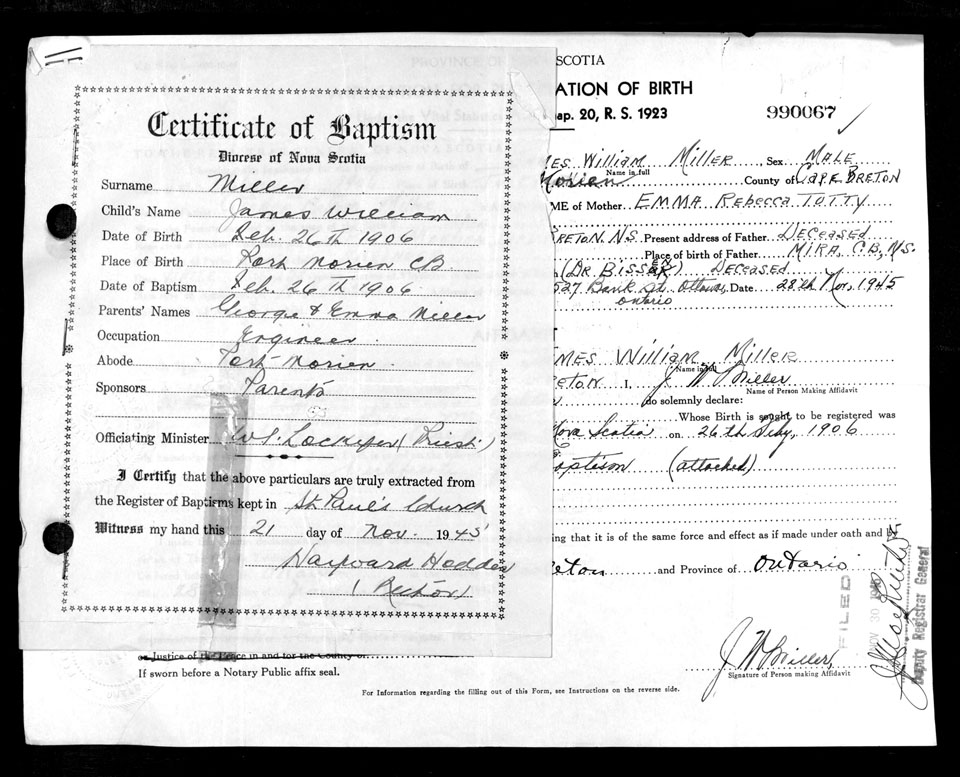 Certificate of Baptism
Diocese of Nova Scotia
Surname Miller
Child's Name James William
Date of Birth Feb. 26th 1906
Place of Birth Port Morien CB.
Date of Baptism Feb. 26th 1906
Parents' Names George & Emma Miller
Occupation Engineer
Abode Port Morien.
Sponsors Parents
Officiating Minister (Priest)
I Certify that the above particulars are truly extracted from
the Register of Baptisms kept in St. Paul's Church
Witness my hand this 21 day of Nov. 1945
Hayward Hodder
(Rector)
or Justice of the Peace in and for the County of
If sworn before a Notary Public affix seal.
PROVINCE OF SCOTIA
ATION OF BIRTH
ap. 20, R. S. 1923
990067
MES William Miller Sex MALE
Name in full
Morien County of CAPE BRETON
ME of Mother EMMA Rebecca TUTTY
BRETON. N.S. Present address of Father DECEASED
Place of birth of Father MIRA C.B., N.S.
(DR. BISSEN) DECEASED
527 Bank St. Ottawa, Date 28th Nov, 1945
ontario
MES William Miller
Name in full
ETON I, J W Miller
Name of Person Making Affidavit
do solemnly declare:
Whose Birth is sought to be registered was
Nova Scotia on 26th Feby, 1906
aptism (attached)
ing that it is of the same force and effect as if made under oath and by
eton and Province of Ontario
FILED
NOV 30 1945
Deputy Registrar General
J W Miller
Signature of Person making Affidavit
For Information regarding the filling out of this Form, see Instructions on the reverse side.